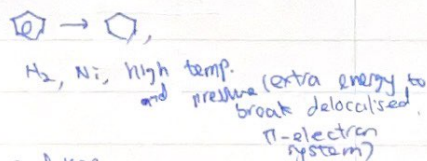 → ,
H₂, Ni, high temp.
and pressure (extra energy to
break delocalised
π-electron
system)